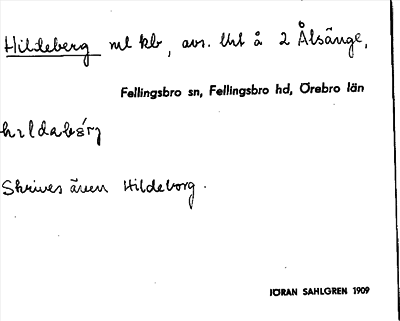 Hildeberg ml kb, avs. lht å 2 Ålsänge,
Fellingsbro sn, Fellingsbro hd, Örebro län
Skrives även Hildeborg.
JÖRAN SAHLGREN 1909